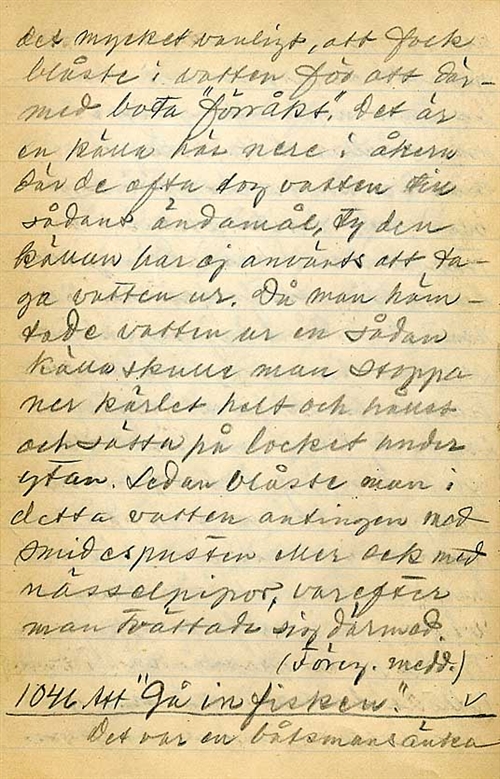 det mycket vanligt, att folk
blåste i vatten för att där-
med bota "förråkt". Det är
en källa här nere i åkern
där de ofta tog vatten till
sådant ändamål, ty den
källan har ej använts att ta-
ga vatten ur. Då man häm-
tade vatten ur en sådan
källa skulle man stoppa
ner kärlet helt och hållet
och sätta på locket under
ytan. Sedan blåste man i
detta vatten antingen med
smidespusten eller ock med
nässelpipor, varefter
man tvättade sig därmed.
(Föreg. medd.)
1046. Att "Gå in fisken." ✓
Det var en båtsmansänka